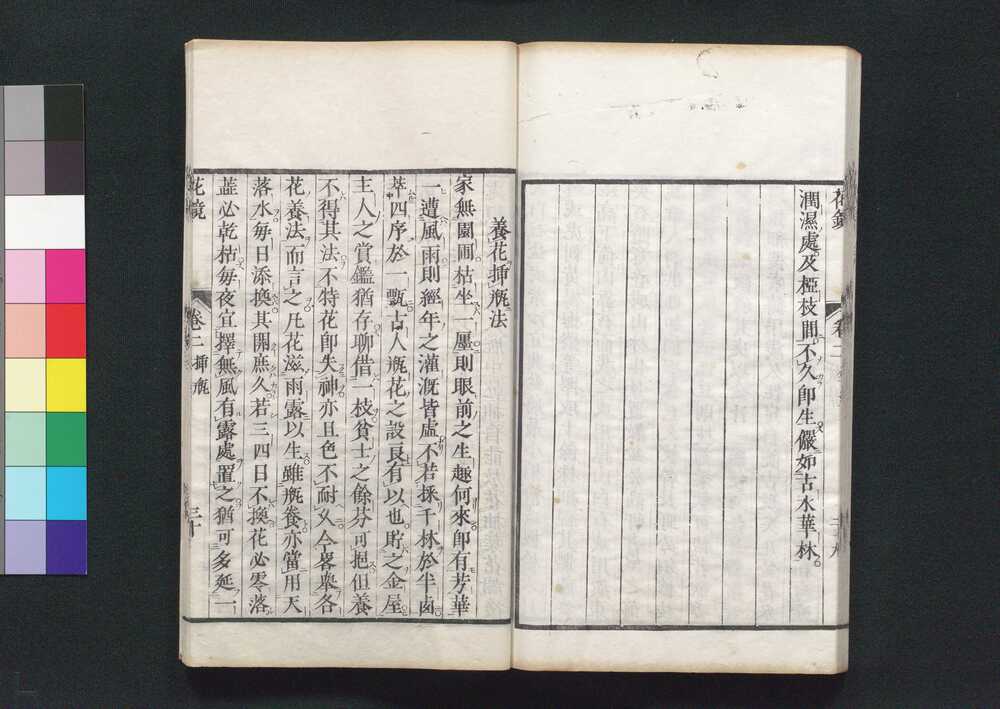 潤濕處及椏枝間不久即生儼如古水華林
養花挿瓶法
家無園圃枯坐一廛則眼前之生趣何來即有芳華
一遭風雨則經年之灌漑皆虛不若採千林於半囱
萃四序於一甌古人瓶花之設良有以也貯之金屋
主人之賞鑑猶存聊借一枝貧士之餘芬可挹但養
不得其法不特花即失神亦且色不耐久今畧舉各
花養法而言之凡花滋雨露以生雖瓶養亦當用天
落水每日添換其開庶久若三四日不換花必零落
蓝必乾枯每夜宜擇無風有露處置之猶可多延一
花鏡
卷二 挿瓶
三十